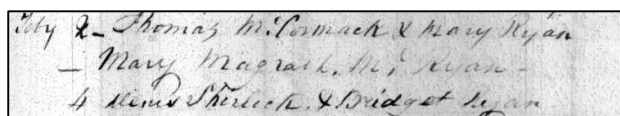 Feby 2 - Thomas McCormack & Mary Ryan
- Mary Magrath. Ryan -
4 Denis Sherlock. & Bridget Ryan